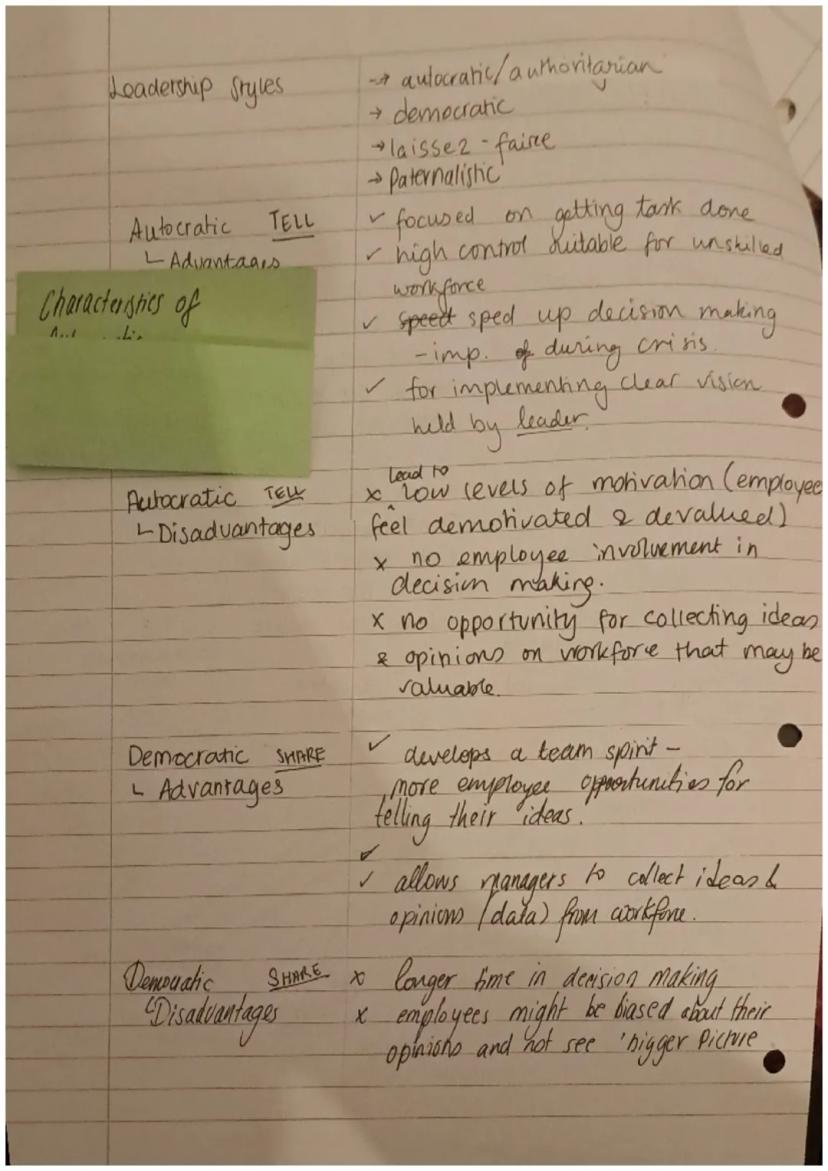 Leadership Styles → autocratic/authoritarian
→ democratic
→ laissez-faire
→ Paternalistic
Autocratic TELL ✓ focused on getting task done
↳ Advantages ✓ high control suitable for unskilled
workforce
Characteristics of
✓ speed sped up decision making
- imp. of during crisis.
✓ for implementing clear vision
held by leader.
lead to
Autocratic TELL x low levels of motivation (employee
↳ Disadvantages feel demotivated & devalued)
x no employee involvement in
decision making.
x no opportunity for collecting ideas
& opinions on workforce that may be
valuable.
Democratic SHARE ✓ develops a team spirit -
↳ Advantages more employee opportunities for
telling their ideas.
✓
✓ allows managers to collect ideas &
opinions (data) from workforce.
Democratic SHARE x longer time in decision making
↳ Disadvantages x employees might be biased about their
opinions and not see 'bigger Picture